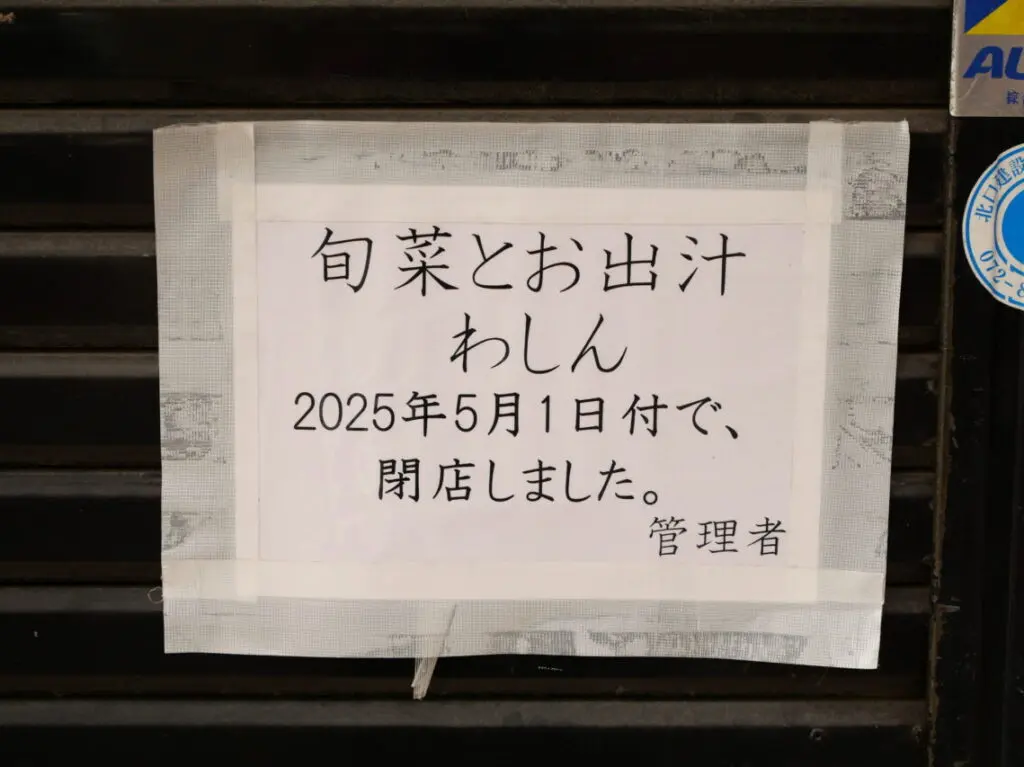 旬菜とお出汁
わしん
2025年5月1日付で、
閉店しました。
管理者
北口建設
072-8